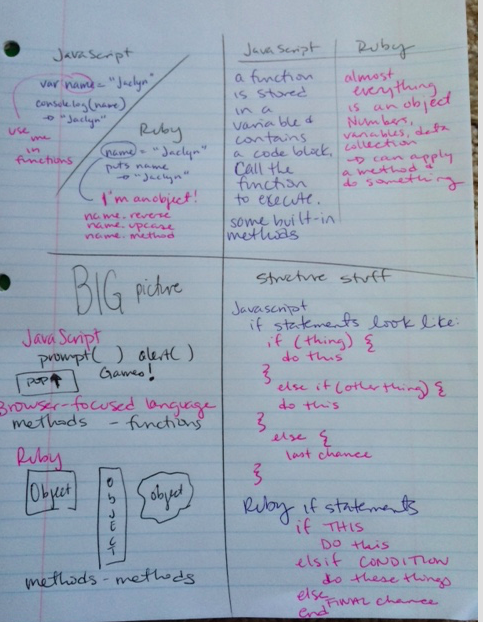 JavaScript
var name = "Jaclyn"
console.log(name)
→ "Jaclyn"
use
me
in
functions
Ruby
name = "Jaclyn"
puts name
→ "Jaclyn"
I'm an object!
name.reverse
name.upcase
name.method
JavaScript
a function
is stored
in a
variable &
contains
a code block.
Call the
function
to execute.
some built-in
methods
Ruby
almost
everything
is an object
Numbers,
variables, data
collection
→ can apply
a method &
do something
BIG picture
JavaScript
prompt( ) alert( )
POP↑ Games!
Browser-focused language
methods - functions
Ruby
Object
OBJECT
object
methods - methods
structure stuff
Javascript
if statements look like:
if (thing) {
do this
}
else if (other thing) {
do this
}
else {
last chance
}
Ruby if statements
if THIS
DO this
elsif CONDITION
do these things
else
FINAL chance
end